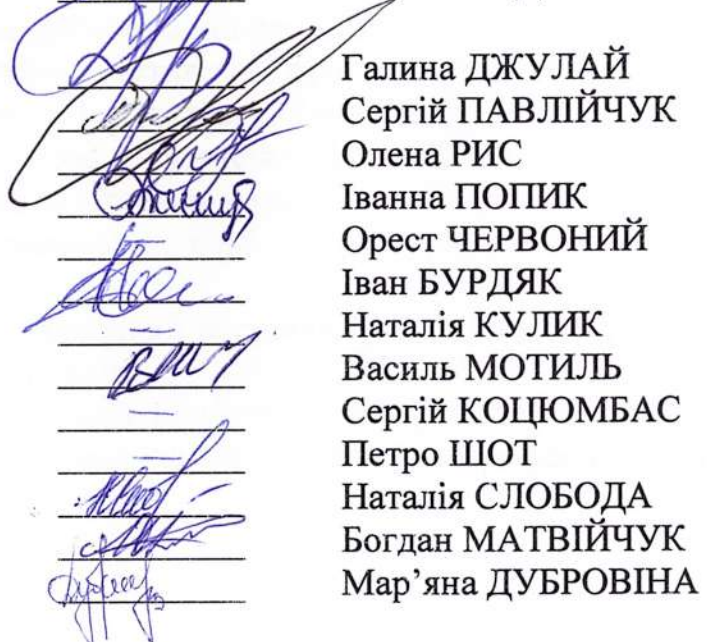 Галина ДЖУЛАЙ
Сергій ПАВЛІЙЧУК
Олена РИС
Іванна ПОПИК
Орест ЧЕРВОНИЙ
Іван БУРДЯК
Наталія КУЛИК
Василь МОТИЛЬ
Сергій КОЦЮМБАС
Петро ШОТ
Наталія СЛОБОДА
Богдан МАТВІЙЧУК
Мар’яна ДУБРОВІНА